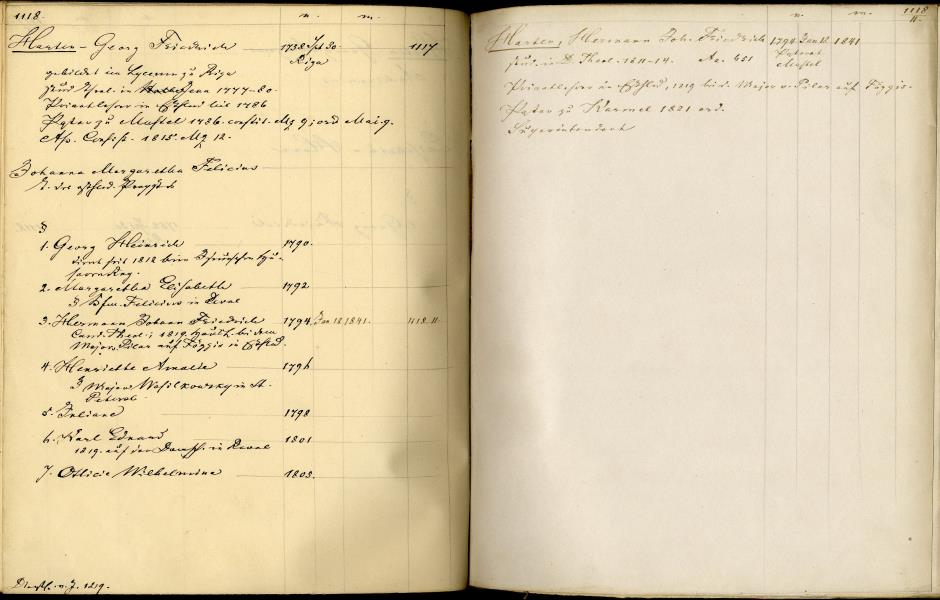 1118. n. m.
Harten - Georg Friedrich 1758 Sept 30. 1117
Riga
gebildet im Lyceum zu Riga
stud. theol. in Jena 1777-80.
Privatlehrer in Ehstland bis 1786
Pastor zu Mustel 1786. confirm. Mz 9; ord Mai 9.
Ass. Consist. 1815. Mz 12.
Johanna Margaretha Felicius
1. Georg Heinrich 1790.
dient seit 1812 beim
2. Margaretha Elisabeth 1792
Felicius in Reval
3. Hermann Johann Friedrich 1794 Jan 12. 1841. 1118.II.
Cand. Theol.; 1819. Hausl. bei dem
Major Pilar auf in Ehstld.
4. Henriette Amalie 1796
Major Wasilkowsky in St.
Petersb.
5. Juliane 1798
6. Karl Eduard 1801
1819. auf der in Reval
7. Ottilie Wilhelmine 1803.
v. J. 1819.
n. m. 1118
II.
Harten, Hermann Joh. Friedrich 1794 Jan 12. 1841
Pastorat
Mustel
stud. in D. Theol. 1811-14. Ac. 651
Privatlehrer in Ehstld, 1819 bei d. Major v. Pilar auf
Pastor zu Karmel 1821 ord.
Superintendent